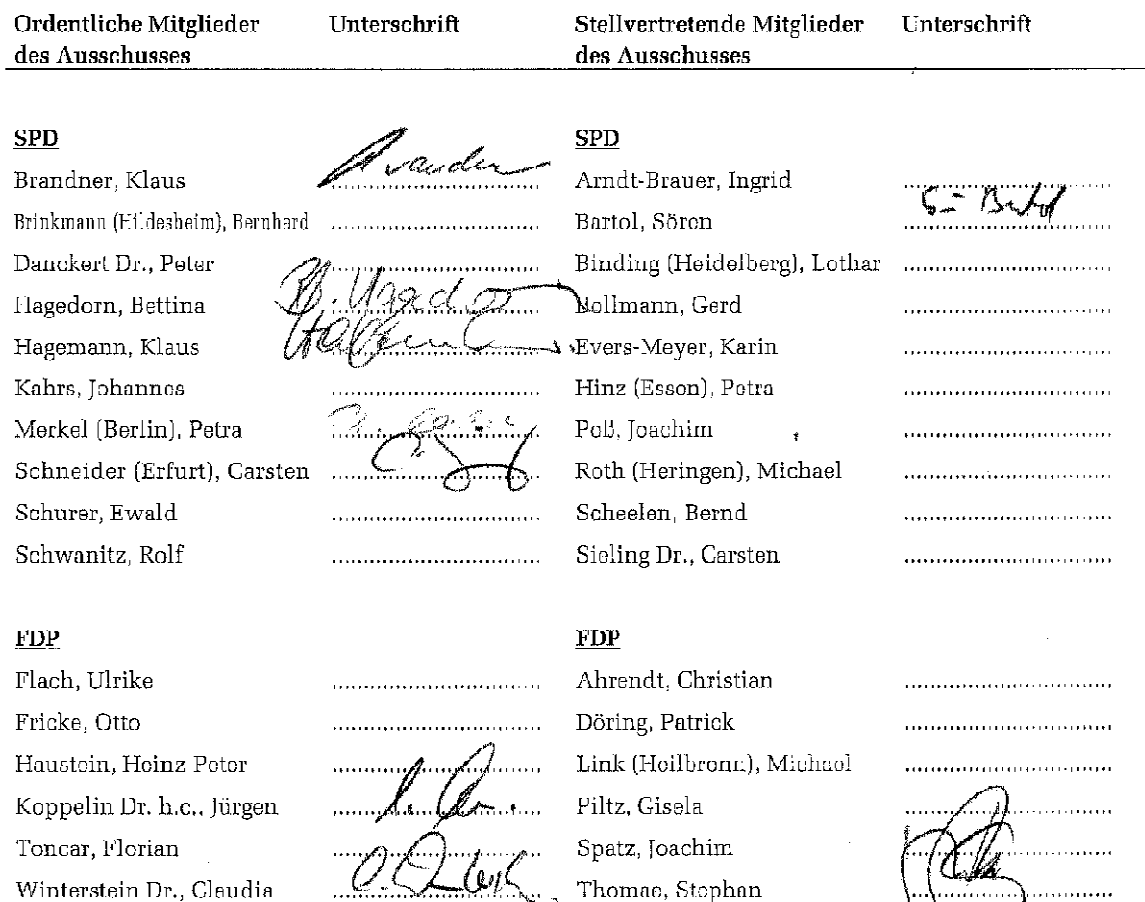 Ordentliche Mitglieder Unterschrift Stellvertretende Mitglieder Unterschrift
des Ausschusses des Ausschusses
SPD SPD
Brandner, Klaus Brandner Arndt-Brauer, Ingrid
Brinkmann (Hildesheim), Bernhard Bartol, Sören
Danckert Dr., Peter Binding (Heidelberg), Lothar
Hagedorn, Bettina B. Hagedorn Bollmann, Gerd
Hagemann, Klaus Evers-Meyer, Karin
Kahrs, Johannes Hinz (Essen), Petra
Merkel (Berlin), Petra Poß, Joachim
Schneider (Erfurt), Carsten Roth (Heringen), Michael
Schurer, Ewald Scheelen, Bernd
Schwanitz, Rolf Sieling Dr., Carsten
FDP FDP
Flach, Ulrike Ahrendt, Christian
Fricke, Otto Döring, Patrick
Haustein, Heinz Peter Link (Heilbronn), Michael
Koppelin Dr. h.c., Jürgen Piltz, Gisela
Toncar, Florian Spatz, Joachim
Winterstein Dr., Claudia Thomae, Stephan